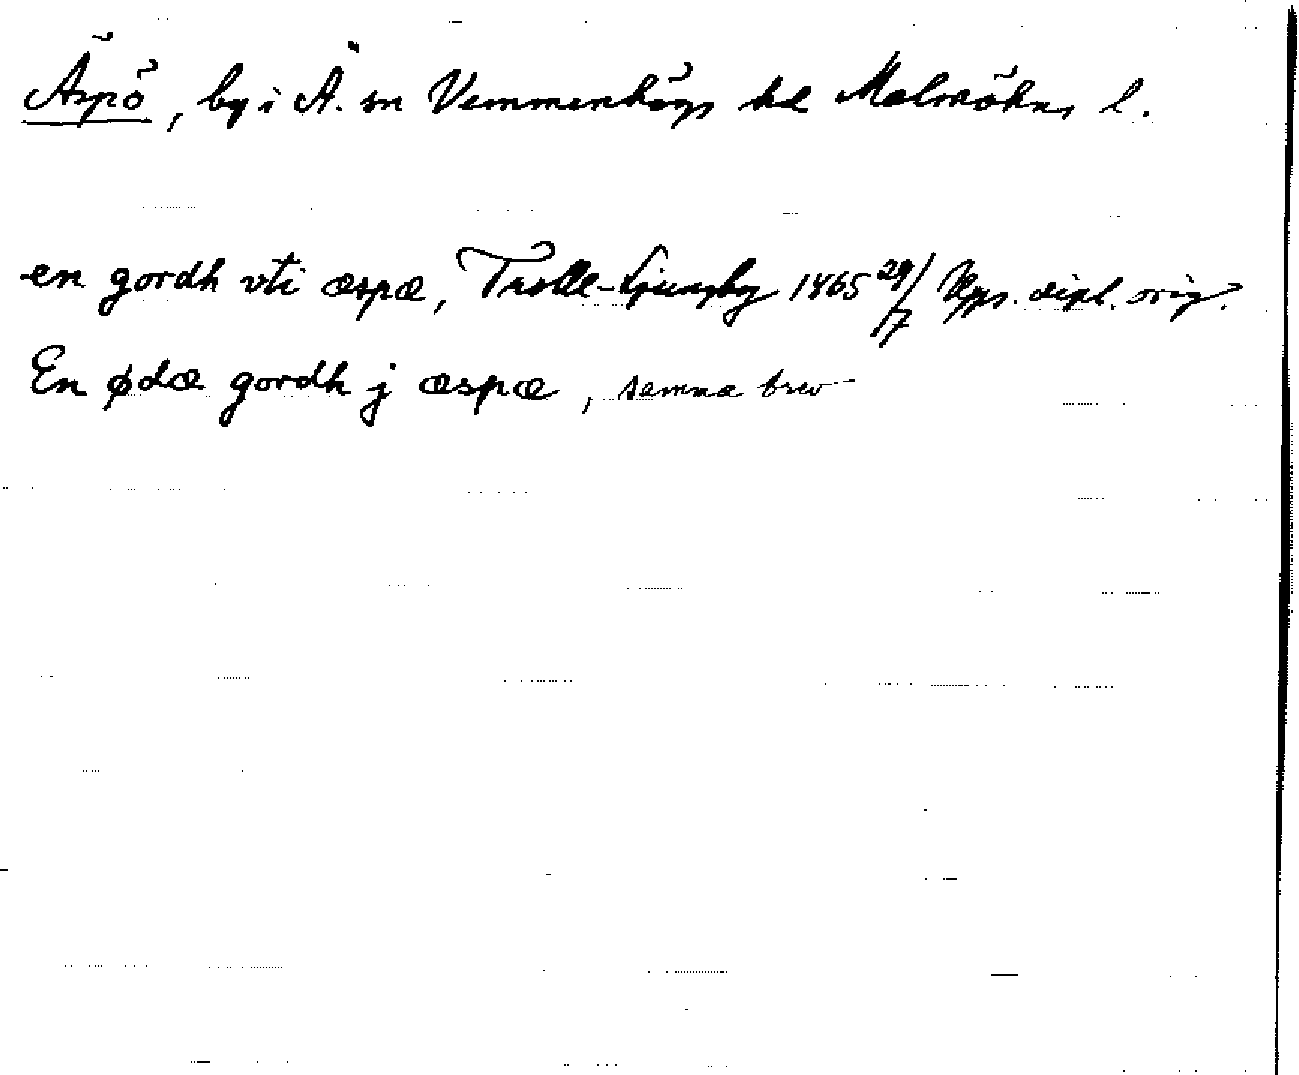 Äspö, by i Ä. sn Vemmenhögs hd Malmöhus l.
en gordh vti æspæ, Trolle-Ljungby 1465 29/7 Ups. dipl. orig.
En ødæ gordh j æspæ, samma brev